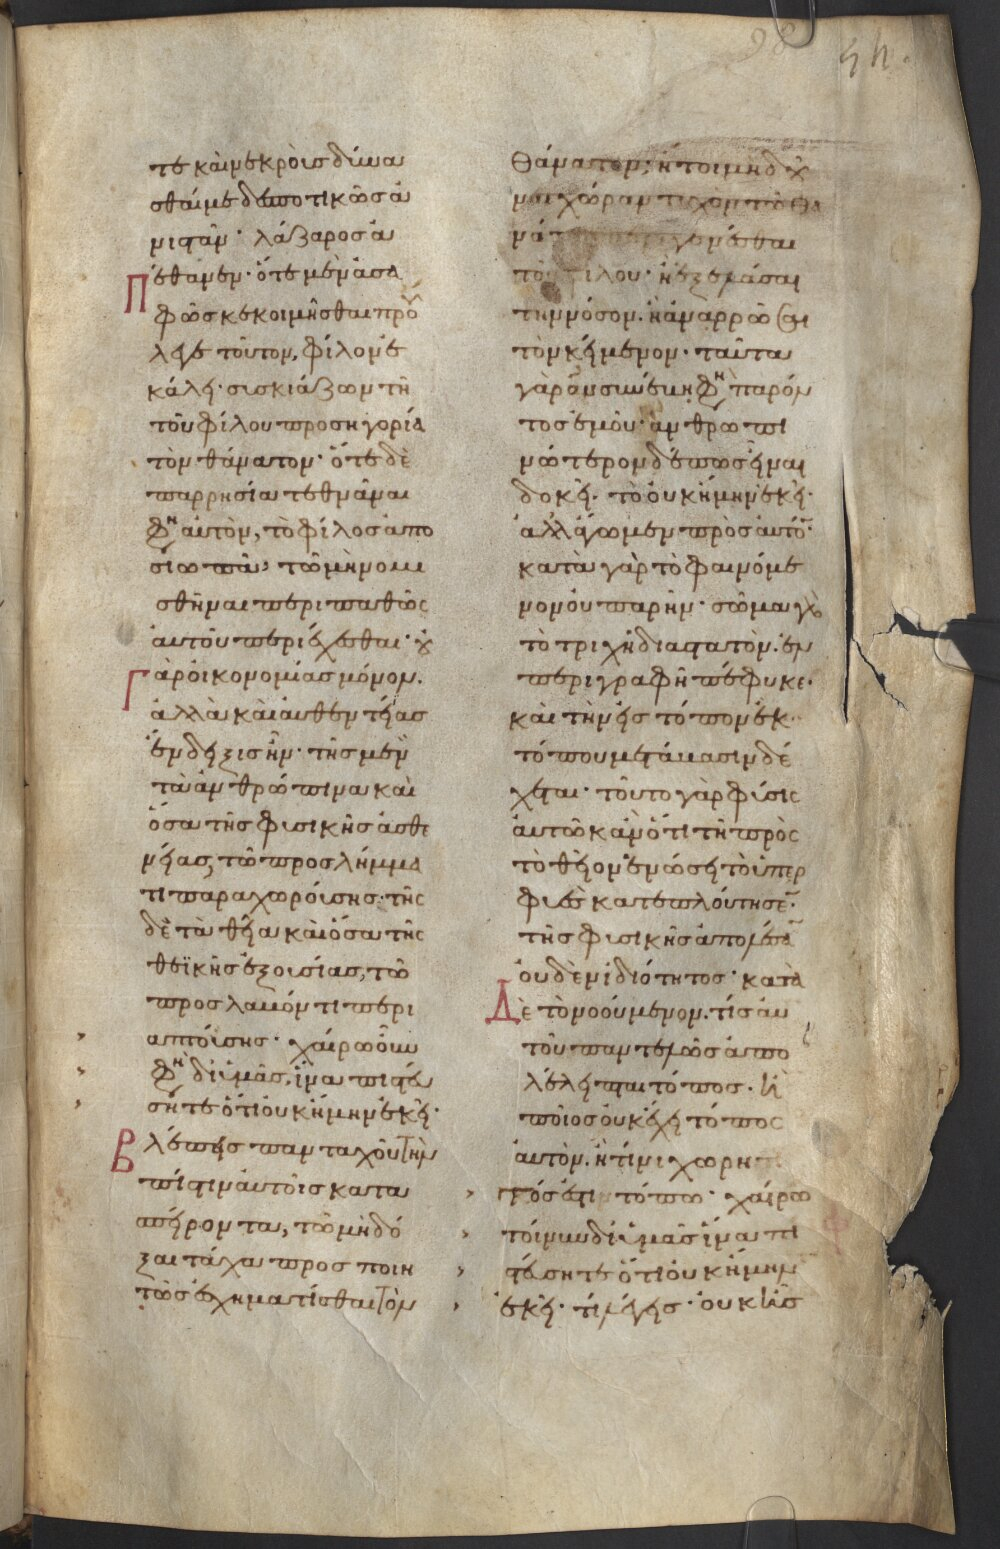 98 ϟη.
τε καὶ νεκροῖς δύνα
σθαί με δεσποτικῶς ἀ
νιστᾶν· λάζαρος ἀ
πέθανεν· ὅτε μὲν ἀσα
φῶς κεκοιμῆσθαι προ
λεγε τοῦτον, φίλον ἐ
κάλει· συσκιάζων τῆ
τοῦ φίλου προσηγορία
τὸν θάνατον· ὅτε δὲ
παρρησία τεθνᾶναι
φη αὐτὸν, τὸ φίλος ἀπο
σιωπᾶ, τῶ μὴ νομι
σθῆναι περιπαθῶς
αὐτοῦ περιέχεσθαι· οὐ
γὰρ οἰκονομίας μόνον.
ἀλλὰ καὶ αὐθεντείας
ἔνδειξις ἦν· τῆς μὲν
τὰ ἀνθρώπινα καὶ
ὅσα τῆς φυσικῆς ἀσθε
νείας, τῶ προσλήμμα
τι παραχωρούσης· τῆς
δὲ τὰ θεῖα καὶ ὅσα τῆς
θεϊκῆς ἐξουσίας, τῶ
προσλαβόντι περι
αππούσης· χαίρω οὖν
φη δι' ὑμᾶς, ἵνα πιστεύ
σητε ὅτι οὐκ ἤμην ἐκεῖ·
βλέπεις πανταχοῦ τὴν
πίστιν αὐτοῖς κατα
σπείροντα, τῶ μὴ δό
ξαι τάχα προσποιη
τῶς ἐσχηματίσθαι τὸν
θάνατον, ἤτοι μὴ δι
τοῦ φίλου· ἢ ἐξελάσαι
τὴν νόσον. ἢ ἀναρρῶσαι
τὸν κείμενον· ταῦτα
γὰρ ἂν συνέβη φη παρόν
τος ἐμοῦ· ἀνθρωπι
νώτερον δέ πως εἶναι
δοκεῖ. τὸ οὐκ ἤμην ἐκεῖ·
ἀλλ' ἄγωμεν πρὸς αὐτόν·
κατὰ γὰρ τὸ φαινόμε
νον οὐ παρῆν· σῶμα γὰρ
τὸ τριχῆ διαστατὸν. ἐν
περιγραφῆ πέφυκε.
καὶ τὴν εἰς τόπον ἐκ
τόπου μετάβασιν δέ
χεται· τοῦτο γὰρ φύσις
αὐτῶ κἀν ὅτι τῆ πρὸς
τὸ θεῖον ἑνώσει τὸ ὑπερ
φυὲς κατεπλούτησεν·
τῆς φυσικῆς ἀπολέσαν
οὐδὲν ἰδιότητος· κατὰ
δὲ τὸ νοούμενον. τίς ἂν
τοῦ παντελῶς ἀπο
λέλειπται τόπος. ἢ
ποῖος οὐκ ἔχει τόπος
αὐτὸν. ἢ τίνι χωρητὸς
τόπω· χαίρω
τοίνυν δι' ὑμᾶς ἵνα πι
στεύσητε ὅτι οὐκ ἤμην
ἐκεῖ· τί λέγεις· οὐκ ἦς